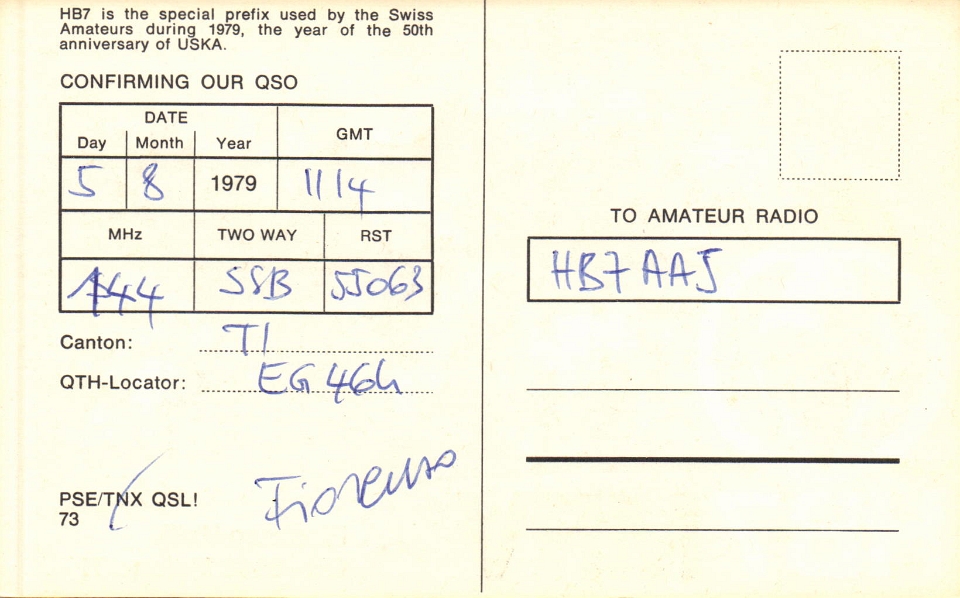 HB7 is the special prefix used by the Swiss
Amateurs during 1979, the year of the 50th
anniversary of USKA.
CONFIRMING OUR QSO
DATE
GMT
Day Month Year
5 8 1979 1114
MHz TWO WAY RST
144 SSB 55063
Canton: TI
QTH-Locator: EG46h
PSE/TNX QSL!
73
Fiorenzo
TO AMATEUR RADIO
HB7AAJ